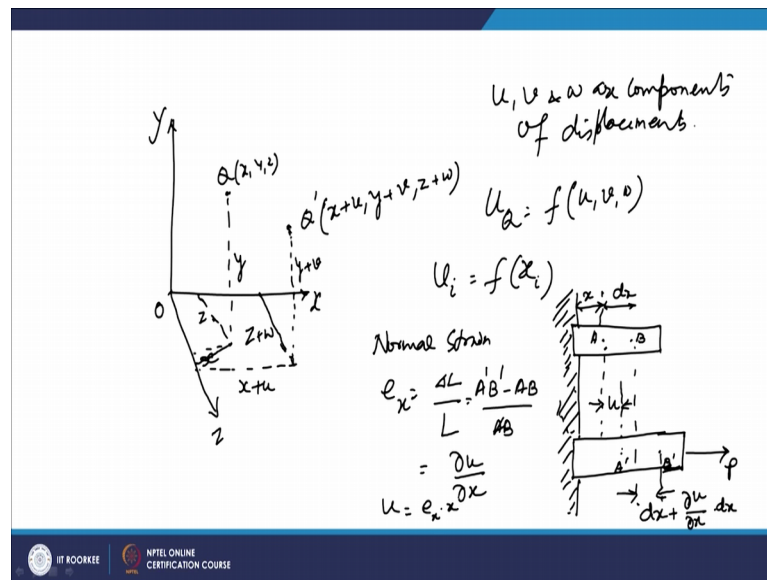 u, v & w are components
of displacements.
y
Q(x, y, z)
Q'(x+u, y+v, z+w)
U_Q = f(u, v, w)
y
y+v
U_i = f(x_i)
O
z
x
z+w
x
x+u
z
Normal Strain
e_x = ΔL/L = A'B' - AB/AB
= ∂u/∂x
u = e_x · x
x
dx
A
B
u
A'
B'
P
dx + ∂u/∂x dx
IIT ROORKEE
NPTEL ONLINE
CERTIFICATION COURSE